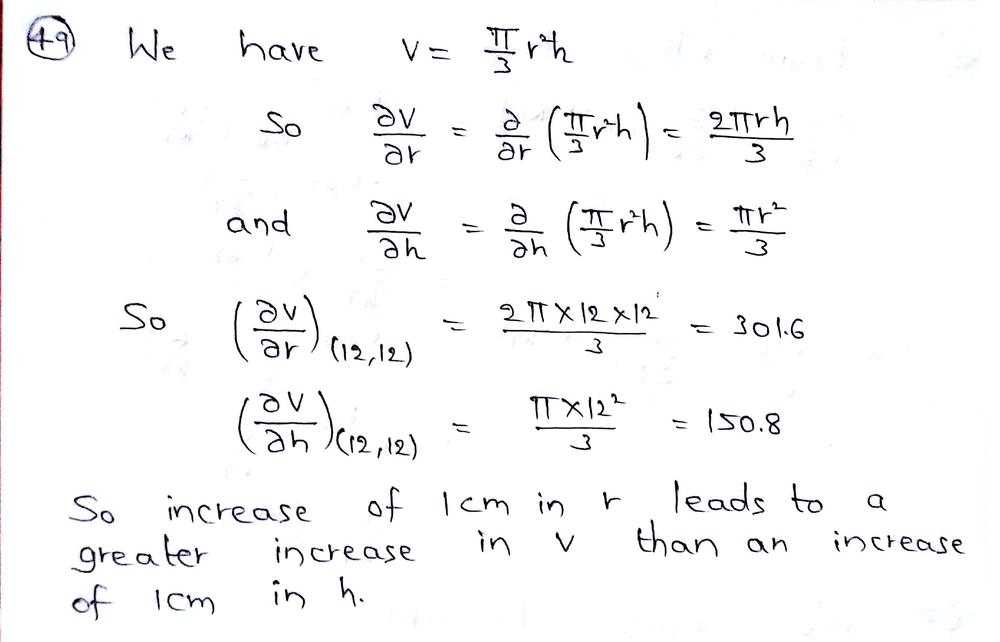 49 We have V = π/3 r²h
So ∂V/∂r = ∂/∂r (π/3 r²h) = 2πrh/3
and ∂V/∂h = ∂/∂h (π/3 r²h) = πr²/3
So (∂V/∂r)(12,12) = 2π×12×12/3 = 301.6
(∂V/∂h)(12,12) = π×12²/3 = 150.8
So increase of 1cm in r leads to a
greater increase in V than an increase
of 1cm in h.